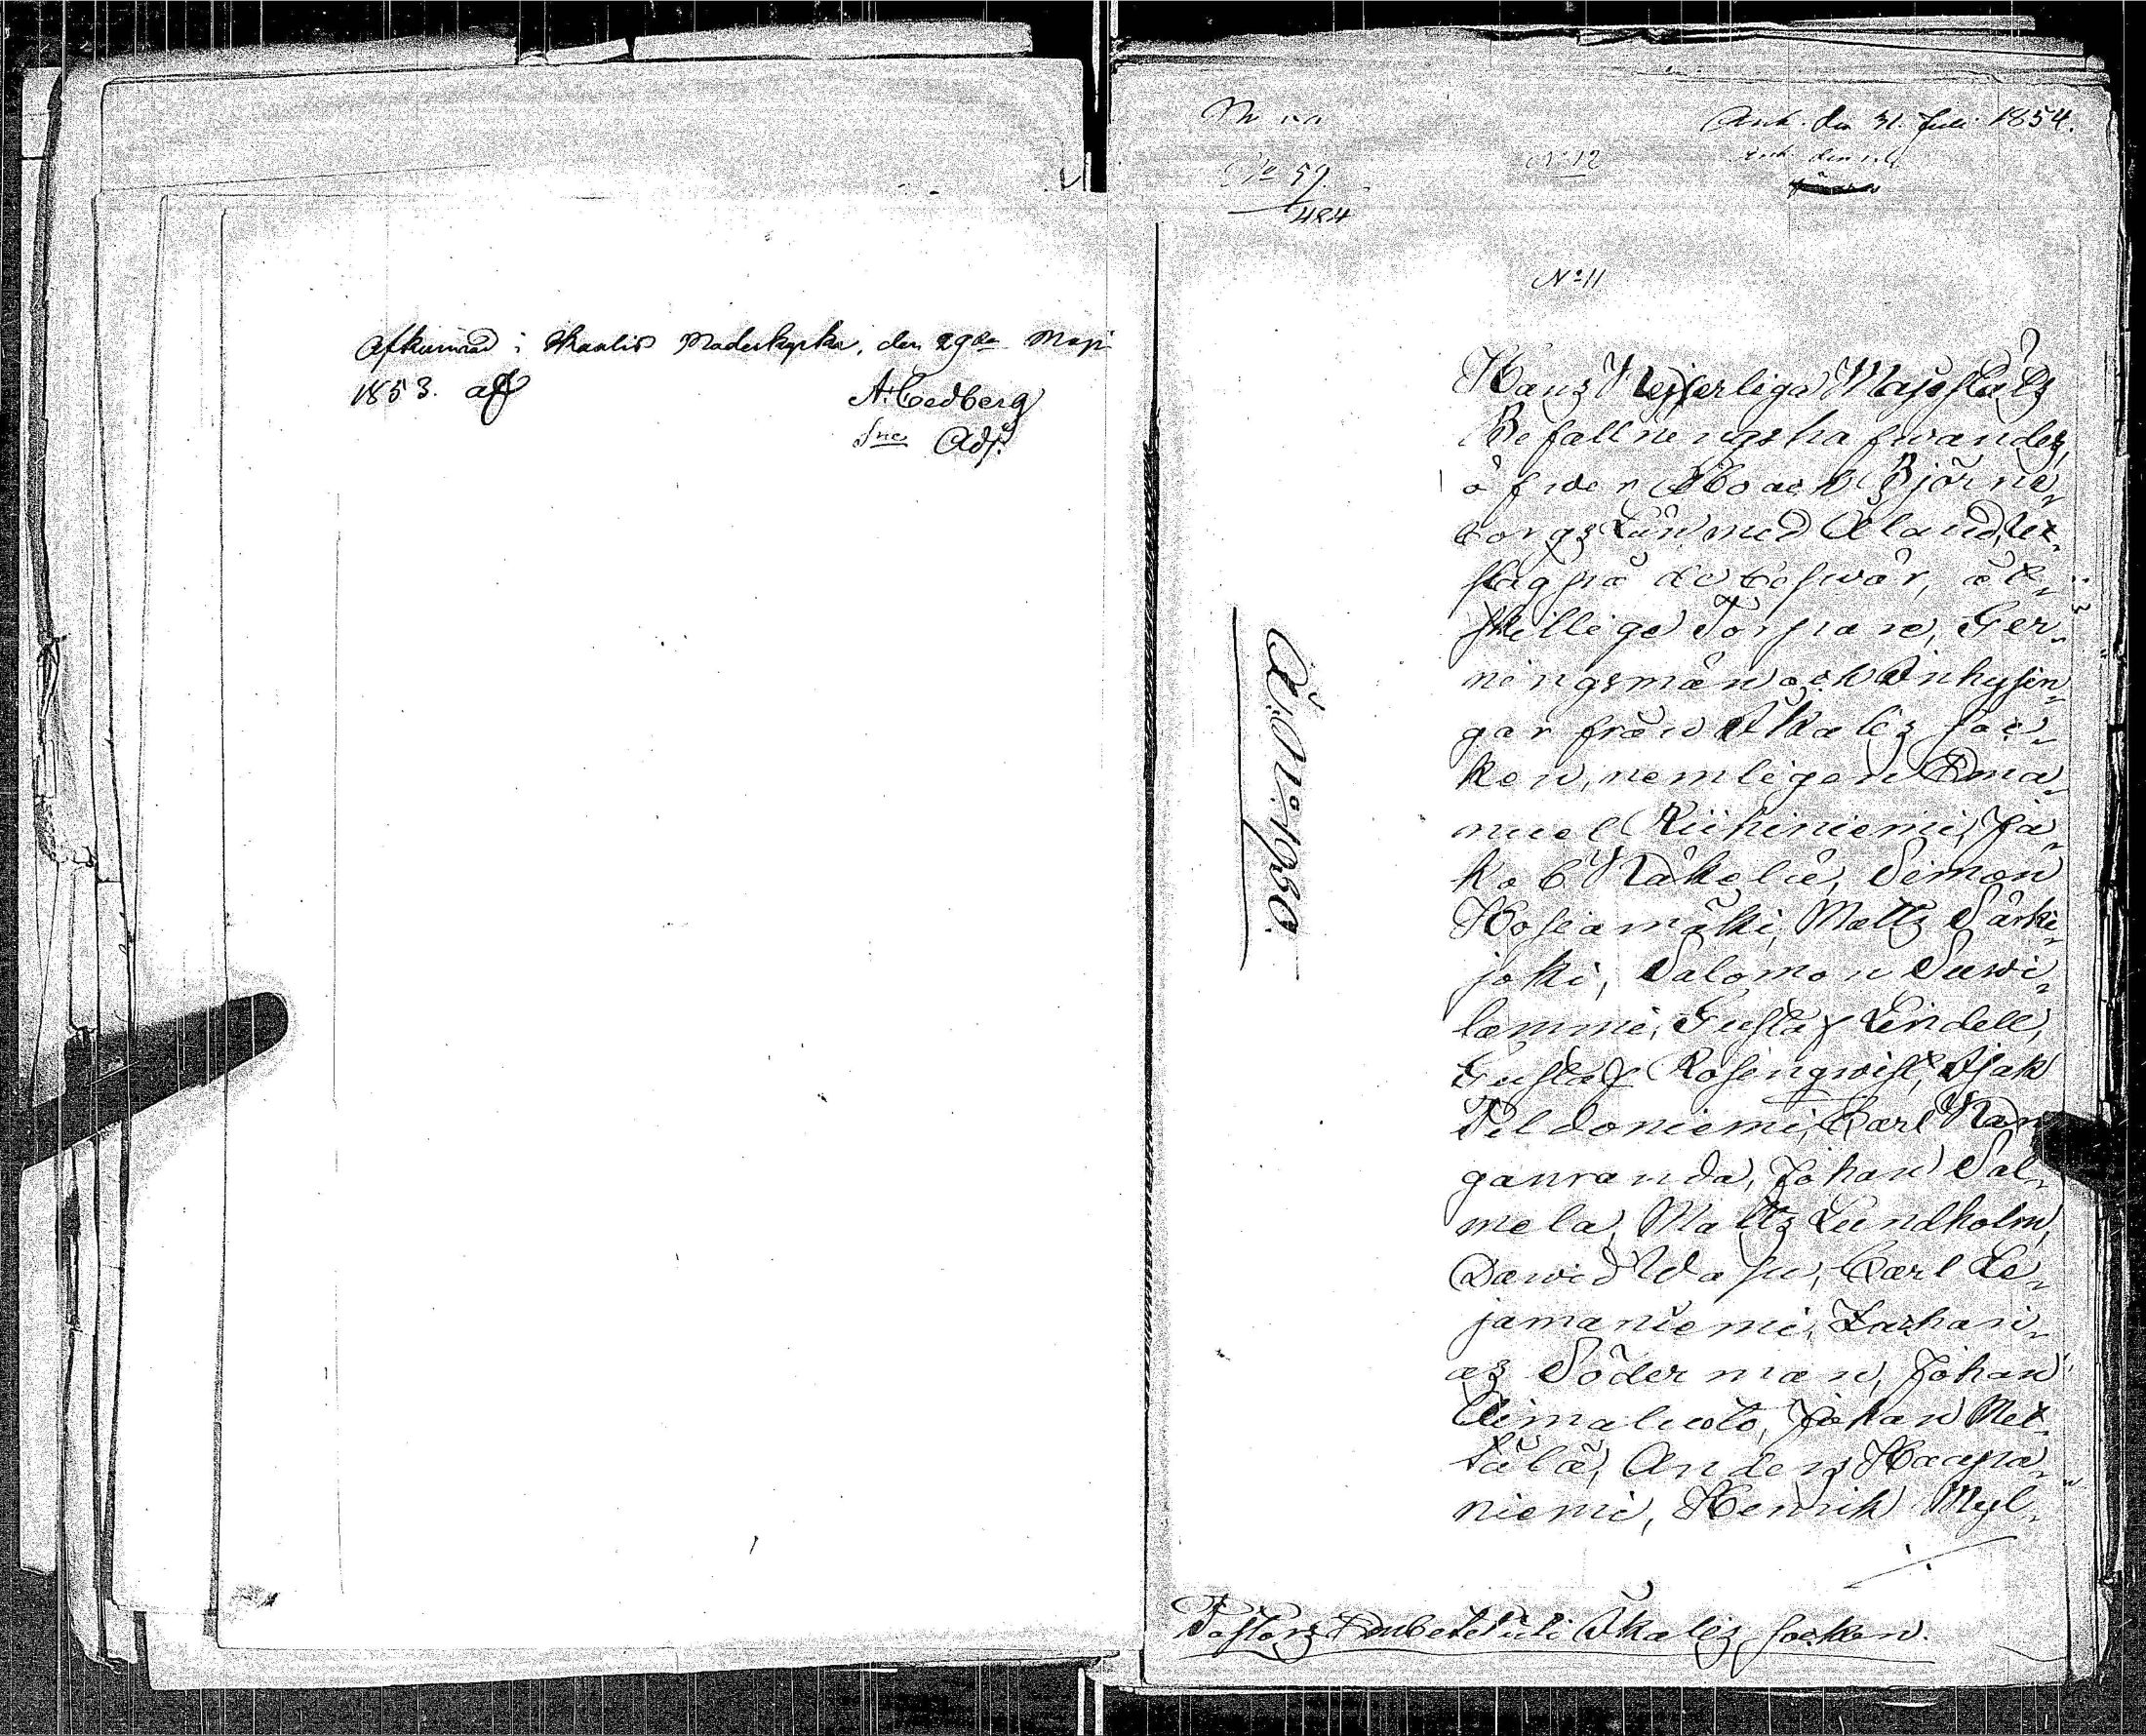 Afkunnad i Ikaalis Moderkyrka, den 29de Maji
1853. af
A: Cedberg
Adj.
Ank. den 31. Juli 1854.
No 12
No 59.
484
No 11
Hans Kejserliga Majestäts
Befallningshafwandes,
öfwer Åbo och Björne-
borgs Län med Åland, Ut-
slag på de beswär, åt-
skillige Torpare, Ger-
ningsmän och Inhysin-
gar från Ikalis soc-
ken, nemligen Ema-
nuel Riihiniemi, Ja-
kob Näkelä, Simon
Hosiamäki, Matts Särki-
joki, Salomon Suwi-
lammi, Gustaf Lindell,
Gustaf Rosenqwist, Isak
Peldoniemi, Carl Kan-
ganranda, Johan Sal-
mela, Matts Lundholm,
Dawid Wasu, Carl Le-
jamaniemi, Zachari-
as Söderman, Johan
Uimaluoto, Johan Met-
tälä, Anders Haapa-
niemi, Henrik Myl-
./.
Pastors Embetet uti Ikalis socken.
A.D. No 1980.